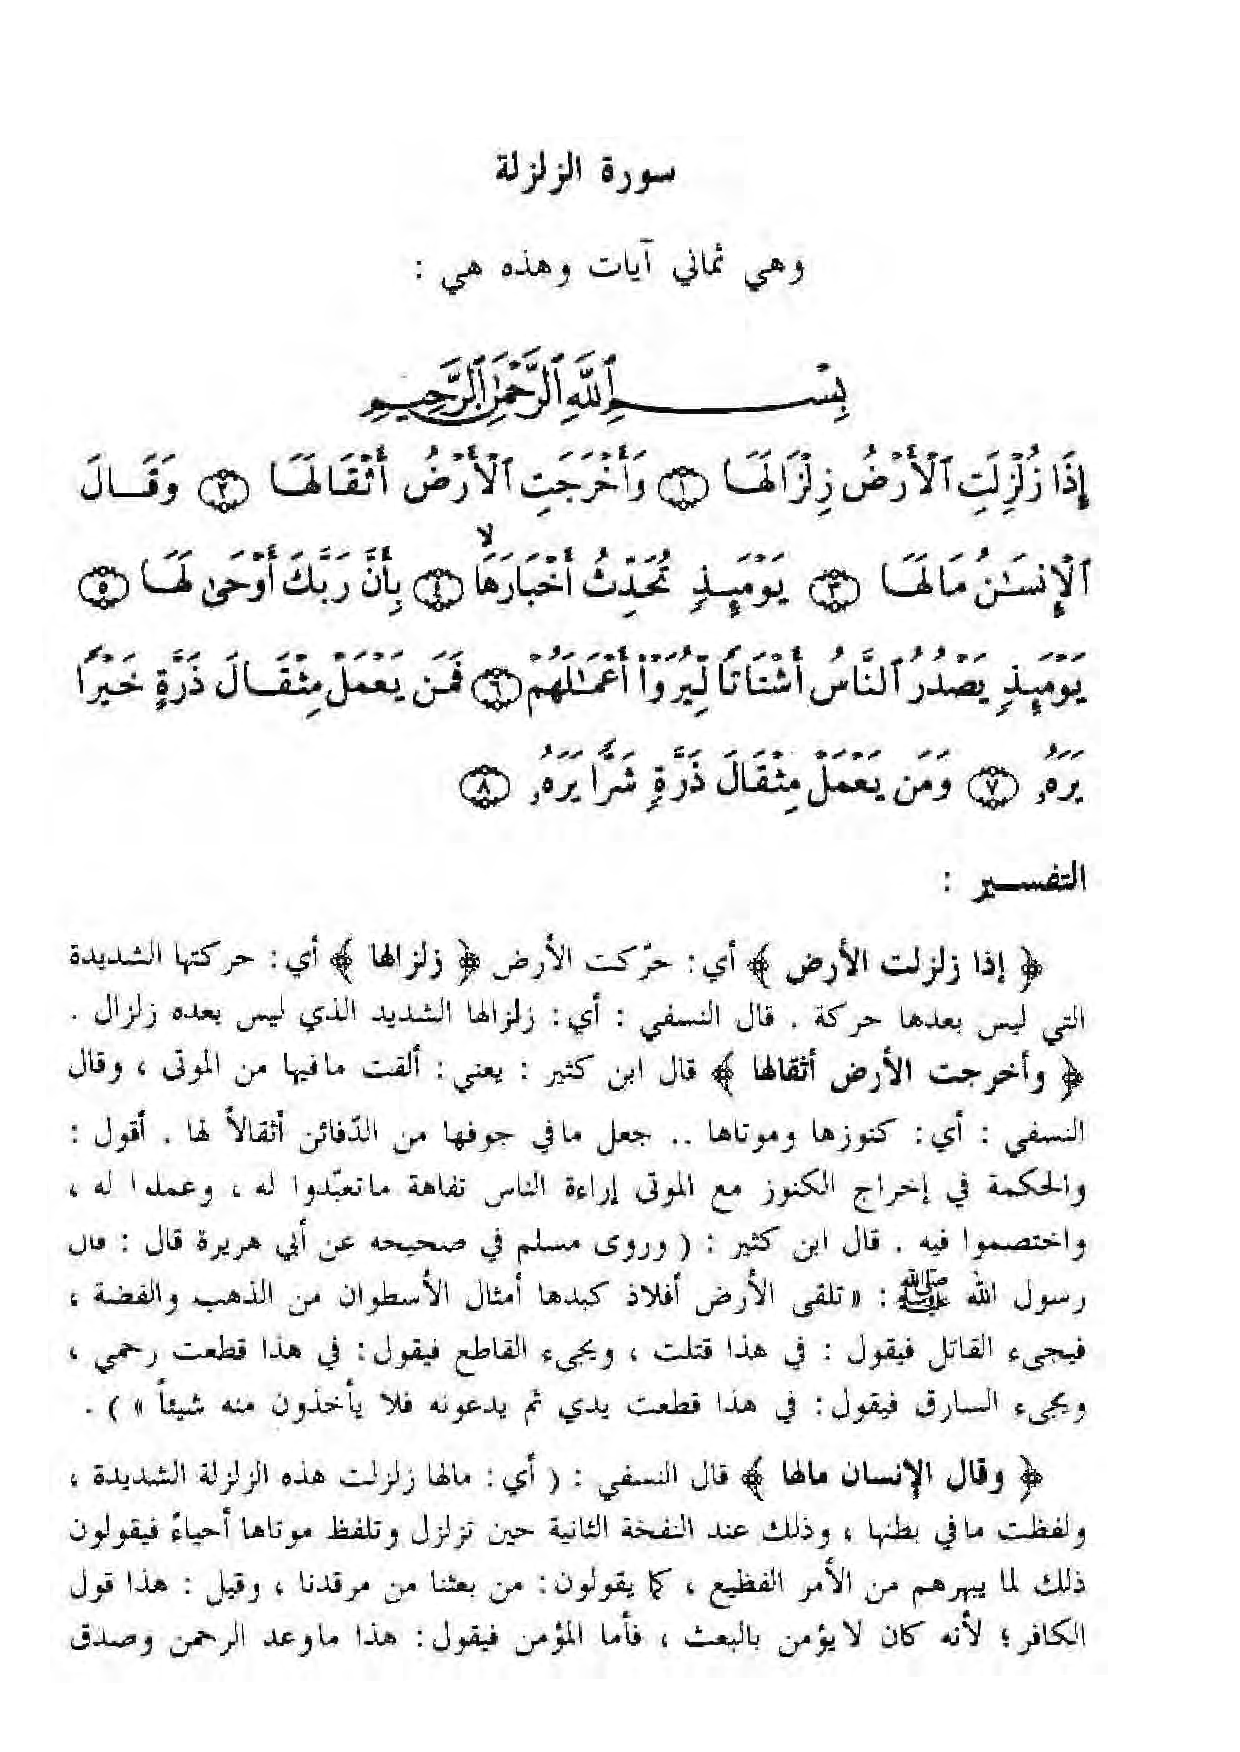 سورة الزلزلة
وهي ثماني آيات وهذه هي :
بِسْمِ ٱللَّهِ ٱلرَّحْمَٰنِ ٱلرَّحِيمِ
إِذَا زُلْزِلَتِ ٱلْأَرْضُ زِلْزَالَهَا ﴿١﴾ وَأَخْرَجَتِ ٱلْأَرْضُ أَثْقَالَهَا ﴿٢﴾ وَقَالَ
ٱلْإِنسَٰنُ مَا لَهَا ﴿٣﴾ يَوْمَئِذٍ تُحَدِّثُ أَخْبَارَهَا ﴿٤﴾ بِأَنَّ رَبَّكَ أَوْحَىٰ لَهَا ﴿٥﴾
يَوْمَئِذٍ يَصْدُرُ ٱلنَّاسُ أَشْتَاتًا لِّيُرَوْا۟ أَعْمَٰلَهُمْ ﴿٦﴾ فَمَن يَعْمَلْ مِثْقَالَ ذَرَّةٍ خَيْرًا
يَرَهُۥ ﴿٧﴾ وَمَن يَعْمَلْ مِثْقَالَ ذَرَّةٍ شَرًّا يَرَهُۥ ﴿٨﴾
التفسير :
﴿ إذا زلزلت الأرض ﴾ أي : حرّكت الأرض ﴿ زلزالها ﴾ أي : حركتها الشديدة
التي ليس بعدها حركة . قال النسفي : أي : زلزالها الشديد الذي ليس بعده زلزال .
﴿ وأخرجت الأرض أثقالها ﴾ قال ابن كثير : يعني : ألقت مافيها من الموتى ، وقال
النسفي : أي : كنوزها وموتاها .. جعل مافي جوفها من الدّفائن أثقالاً لها . أقول :
والحكمة في إخراج الكنوز مع الموتى إراءة الناس تفاهة ماتعبّدوا له ، وعملوا له ،
واختصموا فيه . قال ابن كثير : ( وروى مسلم في صحيحه عن أبي هريرة قال : قال
رسول الله ﷺ : « تلقي الأرض أفلاذ كبدها أمثال الأسطوان من الذهب والفضة ،
فيجيء القاتل فيقول : في هذا قتلت ، ويجيء القاطع فيقول : في هذا قطعت رحمي ،
ويجيء السارق فيقول : في هذا قطعت يدي ثم يدعونه فلا يأخذون منه شيئاً » ) .
﴿ وقال الإنسان مالها ﴾ قال النسفي : ( أي : مالها زلزلت هذه الزلزلة الشديدة ،
ولفظت مافي بطنها ، وذلك عند النفخة الثانية حين تزلزل وتلفظ موتاها أحياءً فيقولون
ذلك لما يبهرهم من الأمر الفظيع ، كما يقولون : من بعثنا من مرقدنا ، وقيل : هذا قول
الكافر ؛ لأنه كان لا يؤمن بالبعث ، فأما المؤمن فيقول : هذا ماوعد الرحمن وصدق